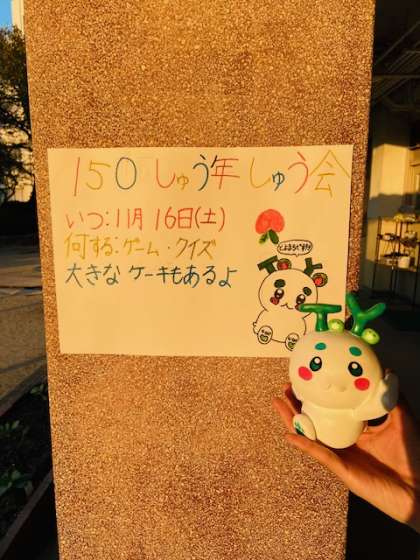 150しゅう年しゅう会
いつ:11月16日(土)
何する:ゲーム・クイズ
大きなケーキもあるよ